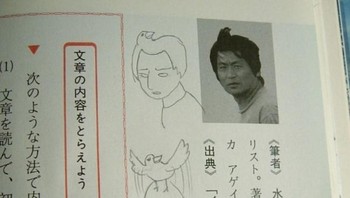 《筆者》 水
リスト。著
《出典》 「
カ アゲイ
文章の内容をとらえよう
▼ 次のような方法で内
(1) 文章を読んで、初